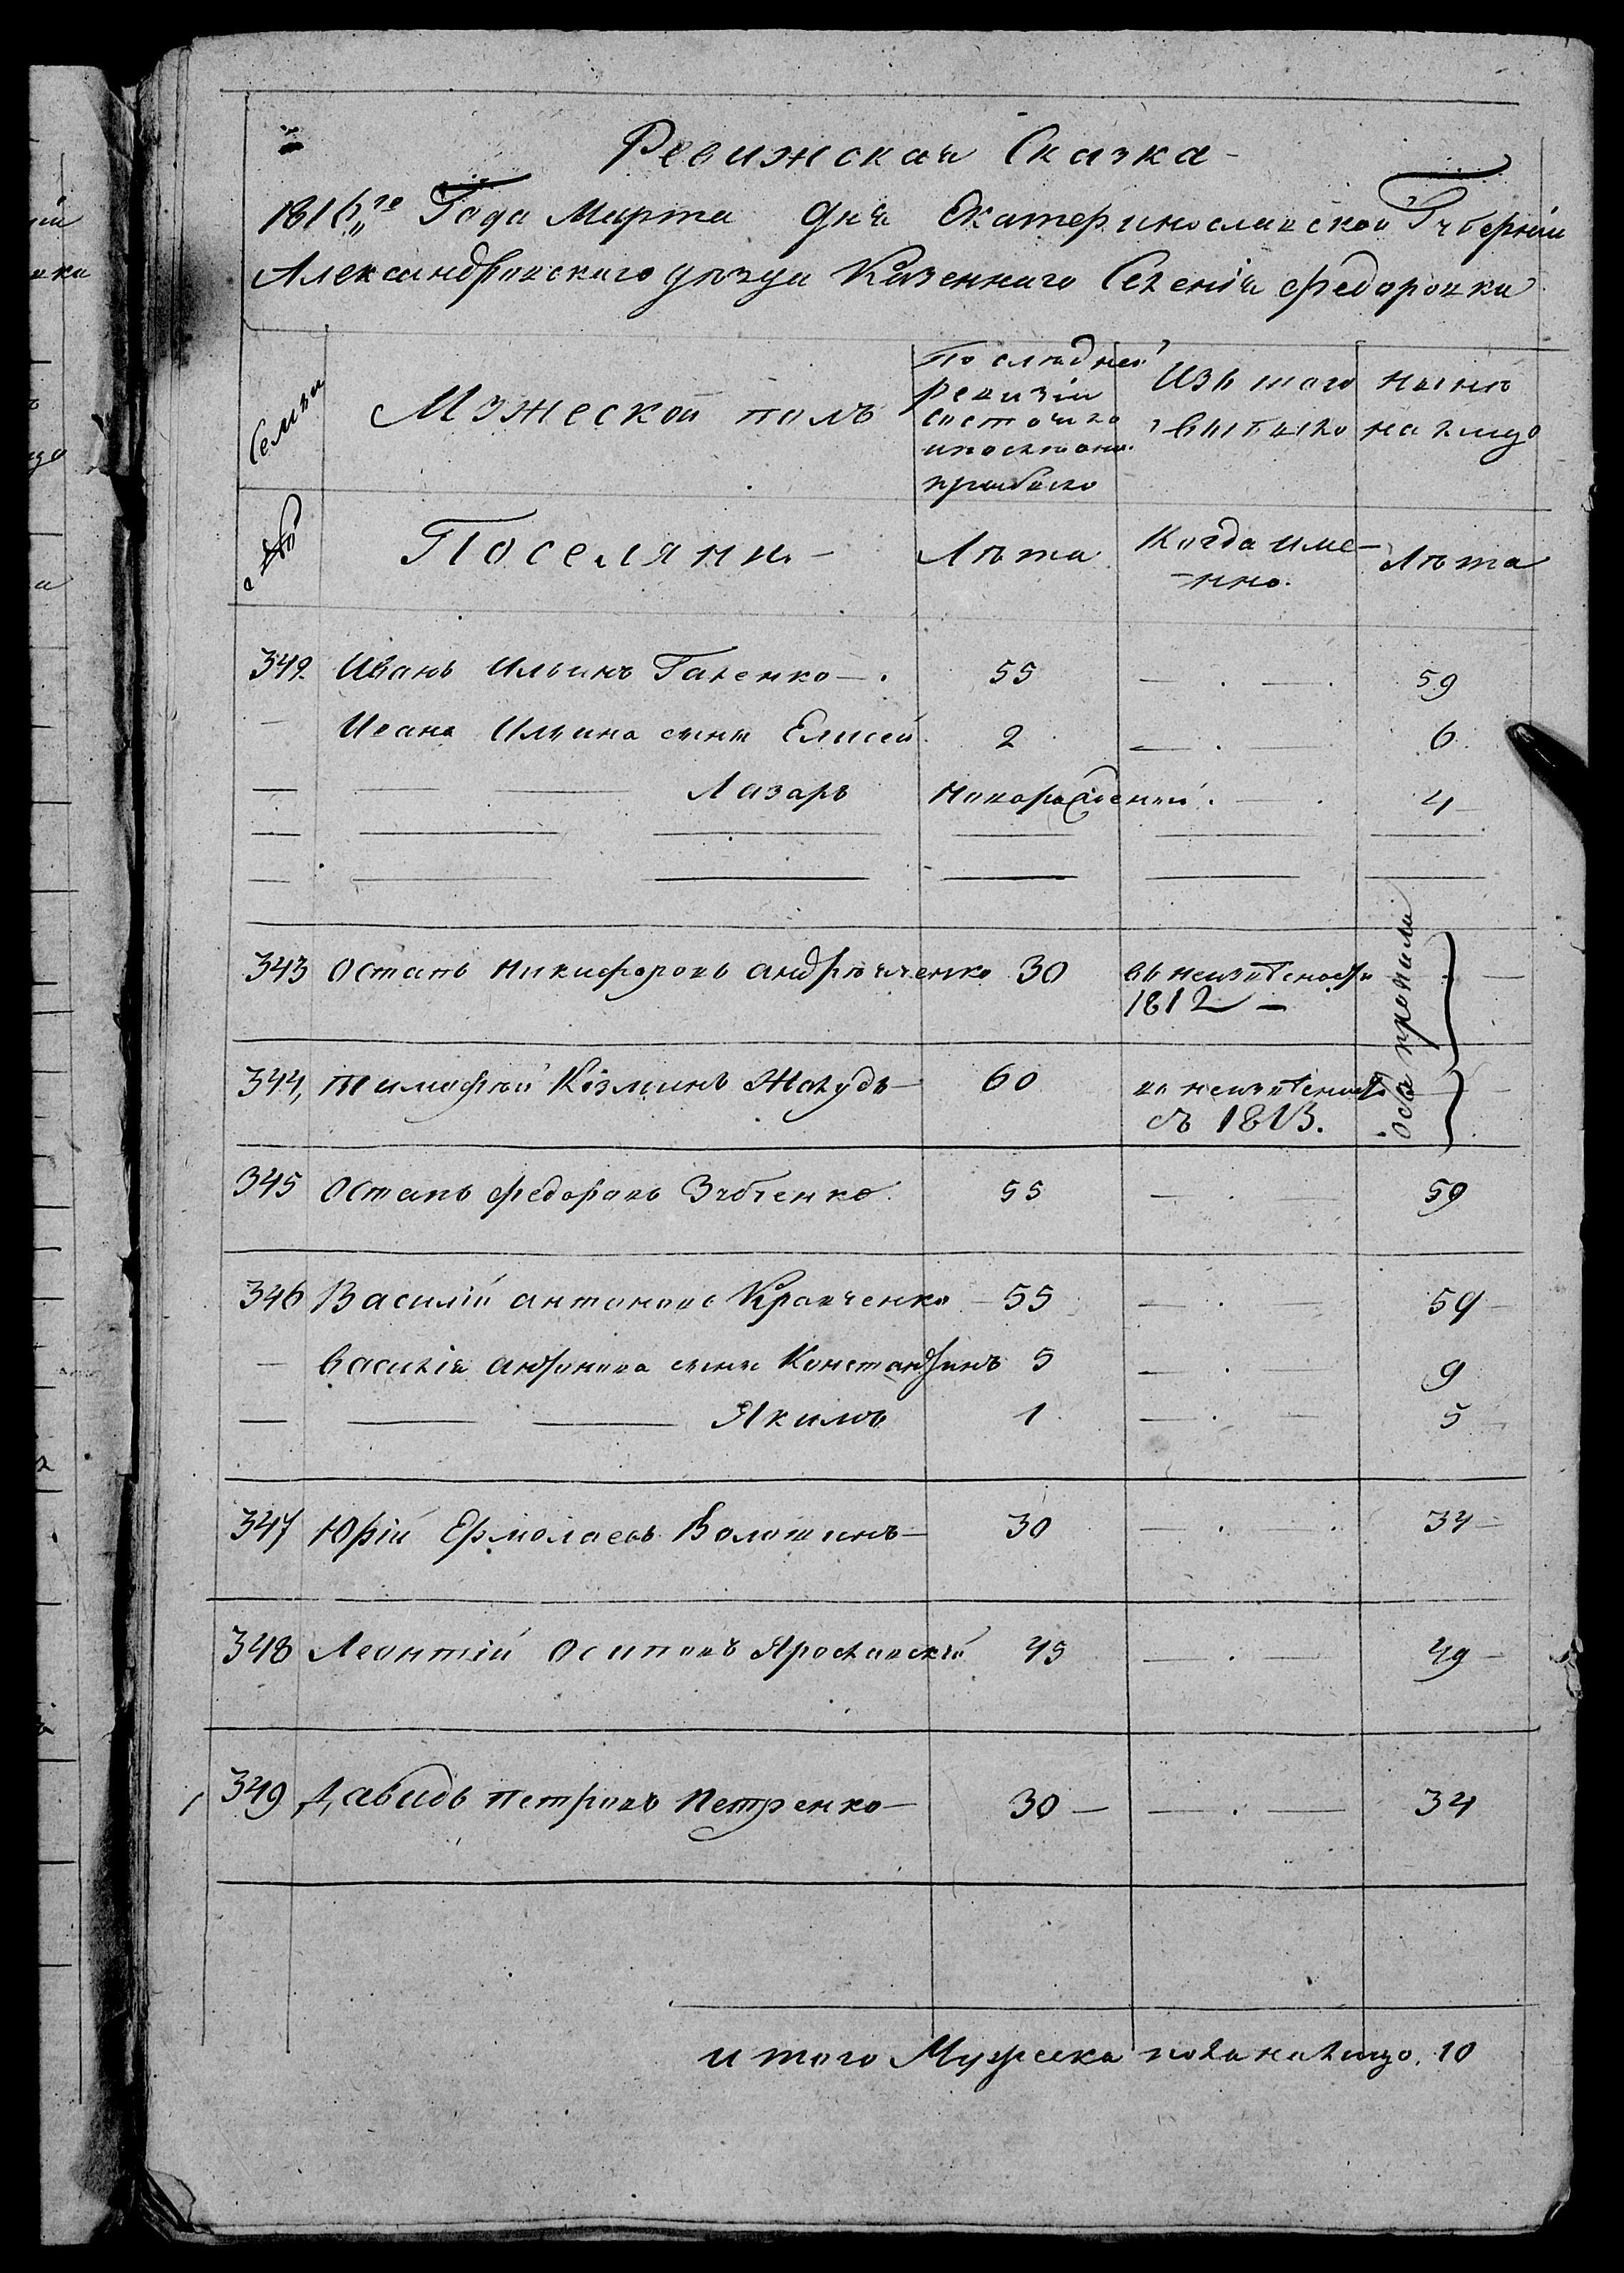 Ревижская Сказка
1816„го Года Марта дня Екатеринославской Губерніи
Александровскаго уезда Казеннаго Селенія Федоровки
Семьи Мужеской полъ По следней ревизіи состояло и после оной прибыло Изъ того выбыло ныне на лицо
№ Поселяни Лѣта Когда име-нно. Лѣта
342 Иванъ Ильинъ Галенко 55 — . — 59
— Ивана Ильина сынъ Елисей 2 — . — 6
— — — Лазарь новорожденой . — . 4
343 Остапъ Никифоровъ Андрющенко 30 въ неизвесности 1812 —
344, Тимофѣй Козминъ Жолудь 60 въ неизвесности съ 1813.
оба
345 Остапъ Федоровъ Зубченко 55 — . 59
346 Василій Антоновъ Кравченко 55 — . — 59
— Василія Антонова сынъ Константинъ 5 — . — 9
— — — Якимъ 1 — . — 5
347 Юрій Ермолаевъ Волошинъ 30 — . — 34
348 Леонтій Осиповъ Ярославскій 45 — . — 49
349 Давидъ Петровъ Петренко 30 — — . — 34
итого Мужеска пола налицо. 10